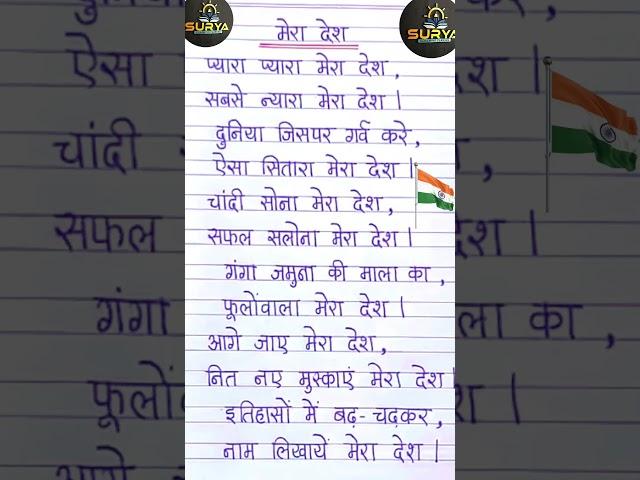 SURYA
SURYA
मेरा देश
प्यारा प्यारा मेरा देश,
सबसे न्यारा मेरा देश।
दुनिया जिसपर गर्व करे,
ऐसा सितारा मेरा देश।
चांदी सोना मेरा देश,
सफल सलोना मेरा देश।
गंगा जमुना की माला का,
फूलोंवाला मेरा देश।
आगे जाए मेरा देश,
नित नए मुस्काएं मेरा देश।
इतिहासों में बढ़-चढ़कर,
नाम लिखायें मेरा देश।